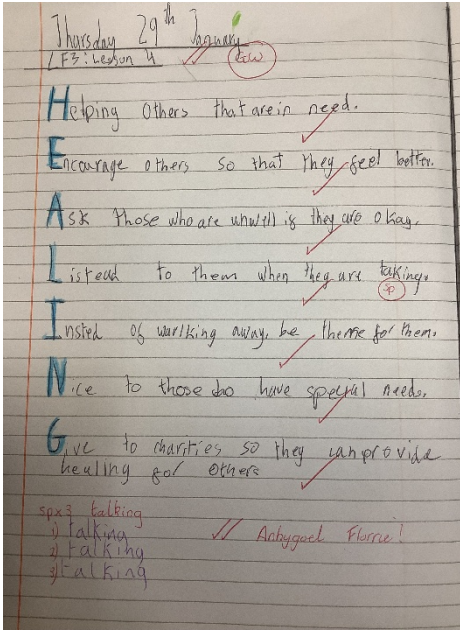 Thursday 29th January
LF3: Lesson 4
GW
Helping others that are in need.
Encourage others so that they feel better.
Ask those who are unwill if they are okay.
Listead to them when they are taking.
sp
Insted of warlking away, be there for them.
Nice to those who have special needs.
Give to charities so they can provide
healing for others
spx3 talking
1) talking
2) talking
3) talking